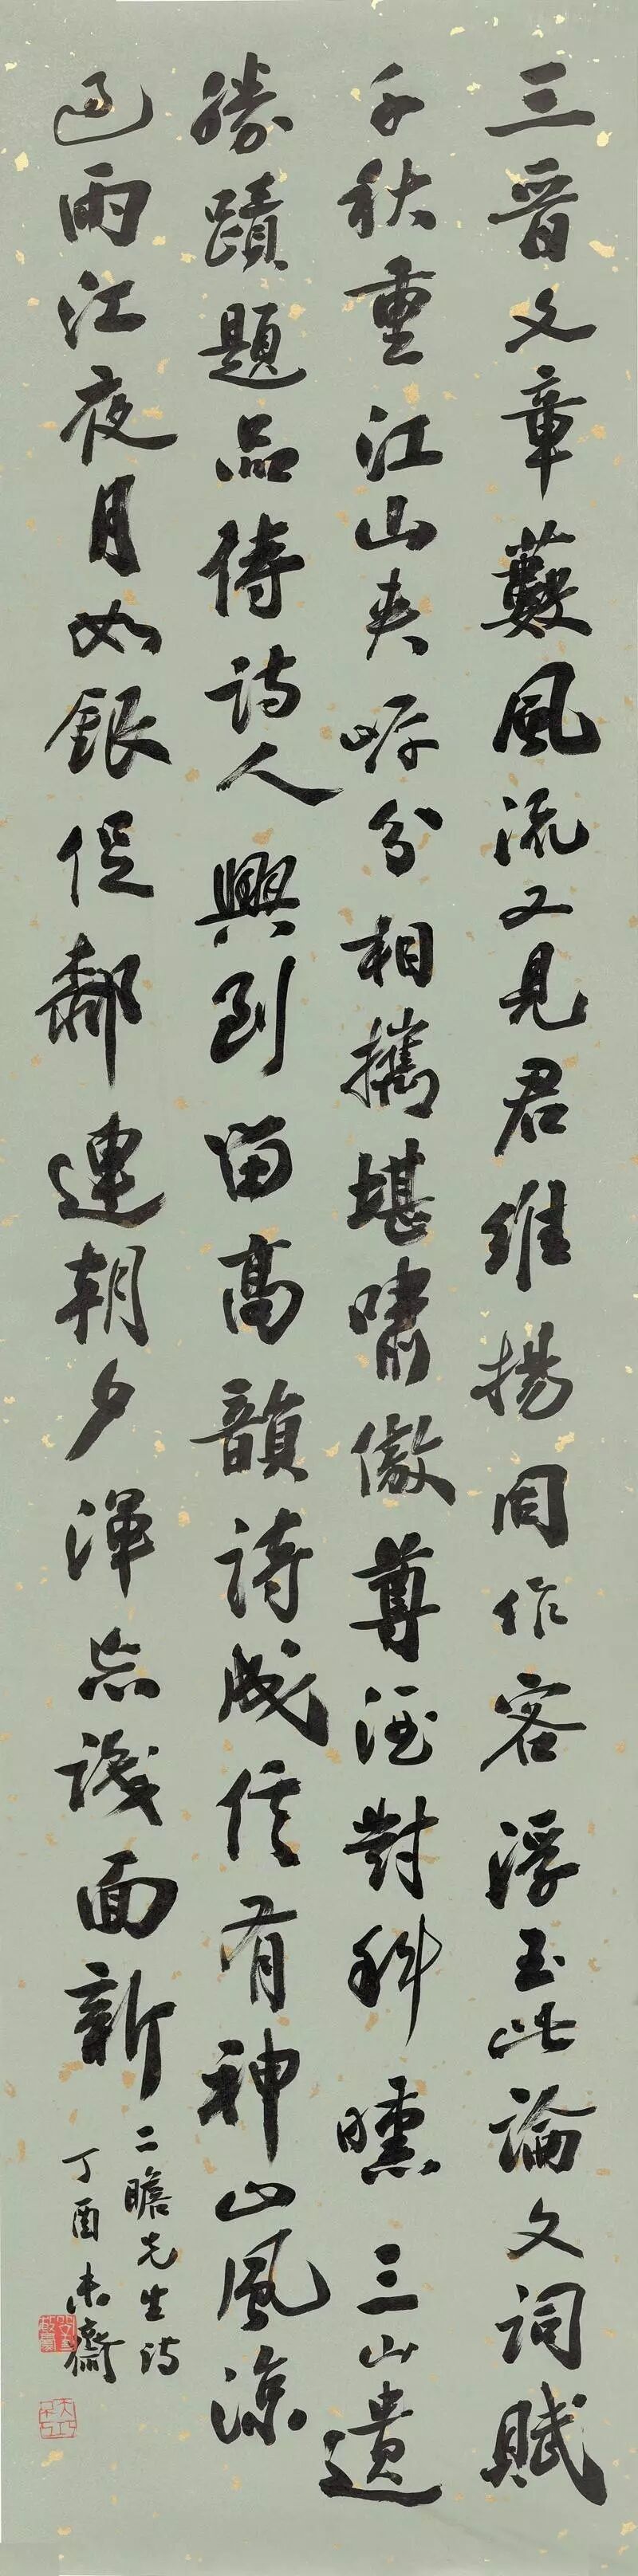 三晉文章藪風流又見君維揚同作客浮玉此論文詞賦
千秋重江山夾岸分相攜堪嘯傲尊酒對斜曛三山遺
勝蹟題品待詩人興到留高韻詩成信有神山風涼
過雨江夜月如銀促膝連朝夕渾忘識面新
二瞻先生詩
丁酉未齋